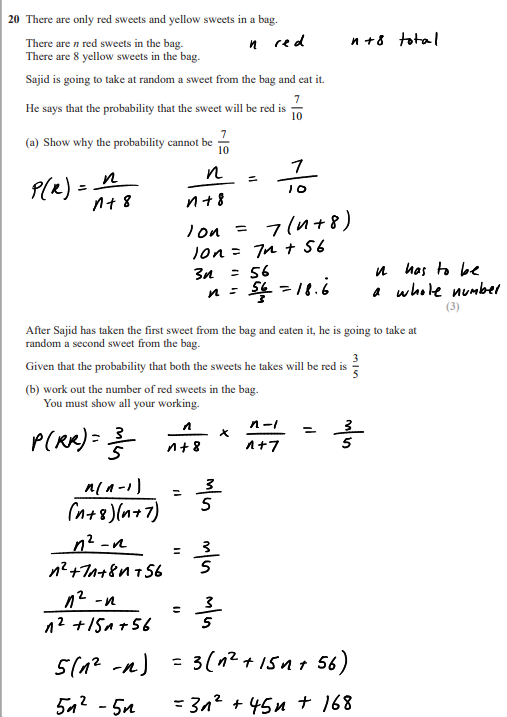 20 There are only red sweets and yellow sweets in a bag.
There are n red sweets in the bag. n red n+8 total
There are 8 yellow sweets in the bag.
Sajid is going to take at random a sweet from the bag and eat it.
He says that the probability that the sweet will be red is 7/10
(a) Show why the probability cannot be 7/10
P(R) = n/(n+8) n/(n+8) = 7/10
10n = 7(n+8)
10n = 7n + 56
3n = 56 n has to be
n = 56/3 = 18.6̇ a whole number
(3)
After Sajid has taken the first sweet from the bag and eaten it, he is going to take at
random a second sweet from the bag.
Given that the probability that both the sweets he takes will be red is 3/5
(b) work out the number of red sweets in the bag.
You must show all your working.
P(RR) = 3/5 n/(n+8) × (n-1)/(n+7) = 3/5
n(n-1)/(n+8)(n+7) = 3/5
(n²-n)/(n²+7n+8n+56) = 3/5
(n²-n)/(n²+15n+56) = 3/5
5(n²-n) = 3(n²+15n+56)
5n²-5n = 3n²+45n+168